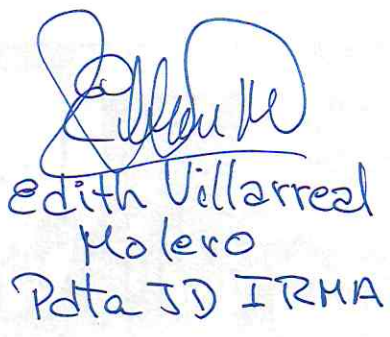 Edith Villarreal
Molero
Pdta JD IRMA